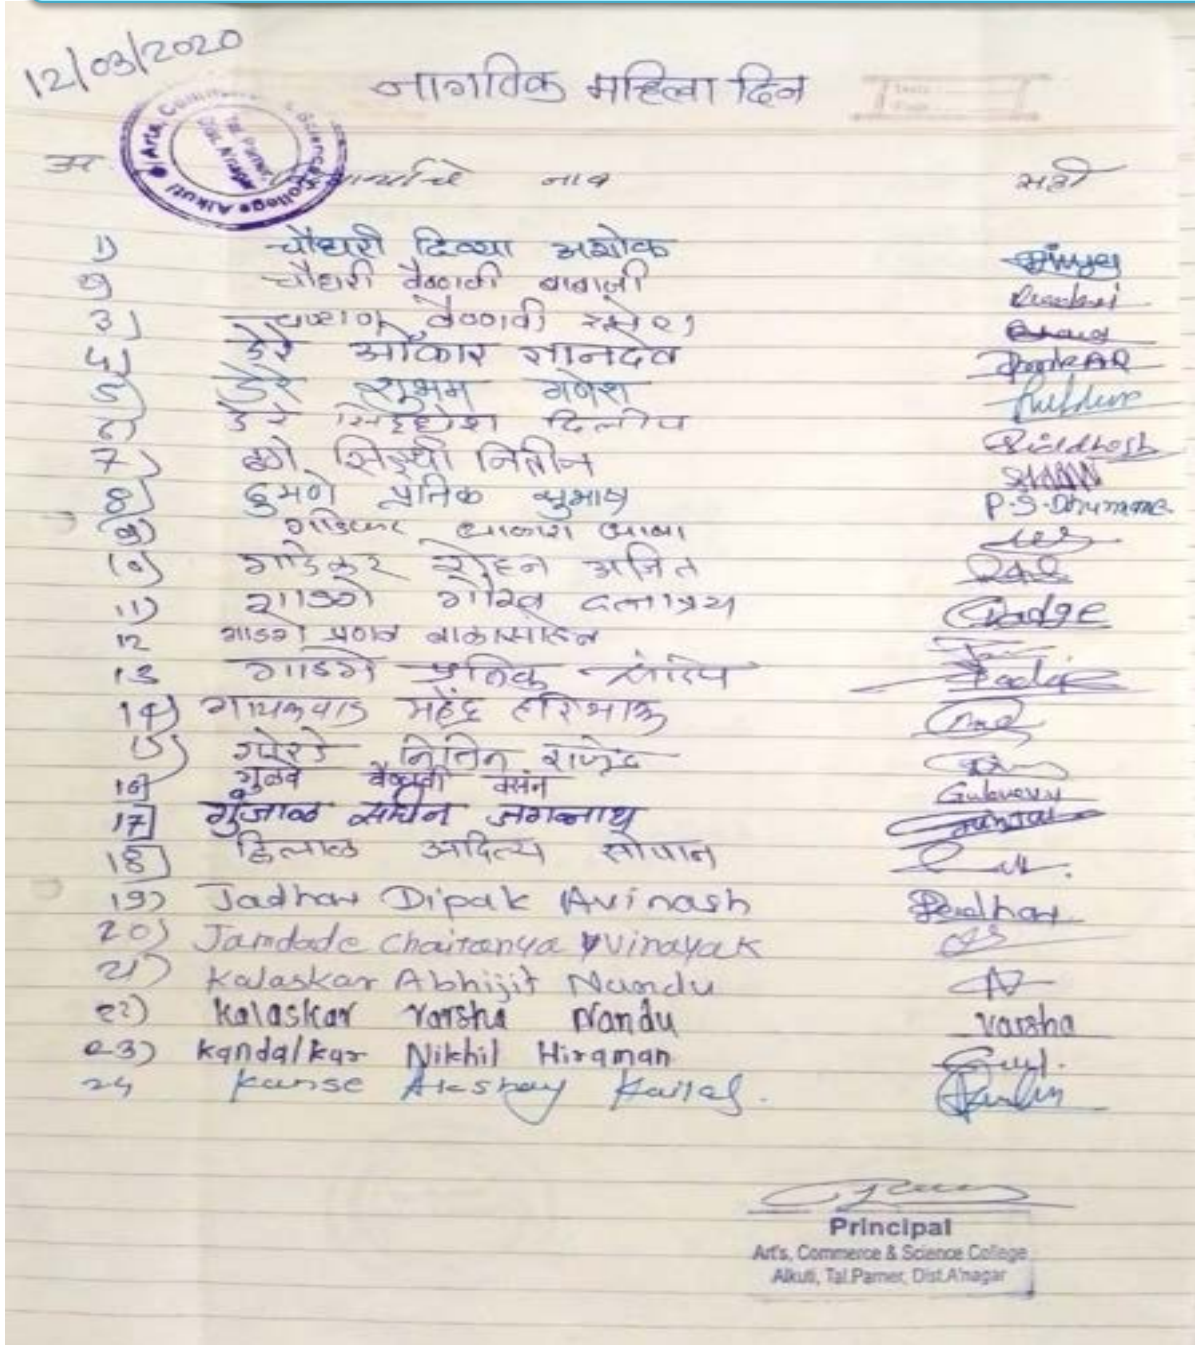 12/03/2020
जागतिक महिला दिन
Arts, Commerce & Science College Alkuti
Tal. Parner, Dist. A'nagar
अ नाव सही
1) चौधरी दिव्या अशोक
2) चौधरी वैष्णवी बाबाजी
3) चव्हाण वैष्णवी
4) डेरे ओंकार ज्ञानदेव
5) डेरे शुभम गणेश
6) डेरे सिद्धेश दिलीप Siddhesh
7) ढगे सिद्धी नितीन
8) ढुमणे प्रतिक सुभाष P.S.Dhumane
9) गाडेकर आकाश आबा
10) गाडेकर रोहन अजित
11) गाडगे गौरव दत्तात्रय Gadge
12 गाडगे प्रणव बाळासाहेब
13 गाडगे प्रतिक संदिप
14) गायकवाड महेंद्र हरिभाऊ
15) नितिन राजेंद्र
16) गुळवे वैष्णवी वसंत
17) गुंजाळ सचिन जगन्नाथ
18) हिलाळ आदित्य सोपान
19) Jadhav Dipak Avinash
20) Jamdade Chaitanya Vinayak
21) Kalaskar Abhijit Nandu
22) Kalaskar Varsha Nandu varsha
23) Kandalkar Nikhil Hiraman
24 Kanse Akshay Kailas.
Principal
Art's, Commerce & Science College
Alkuti, Tal.Parner, Dist.A'nagar